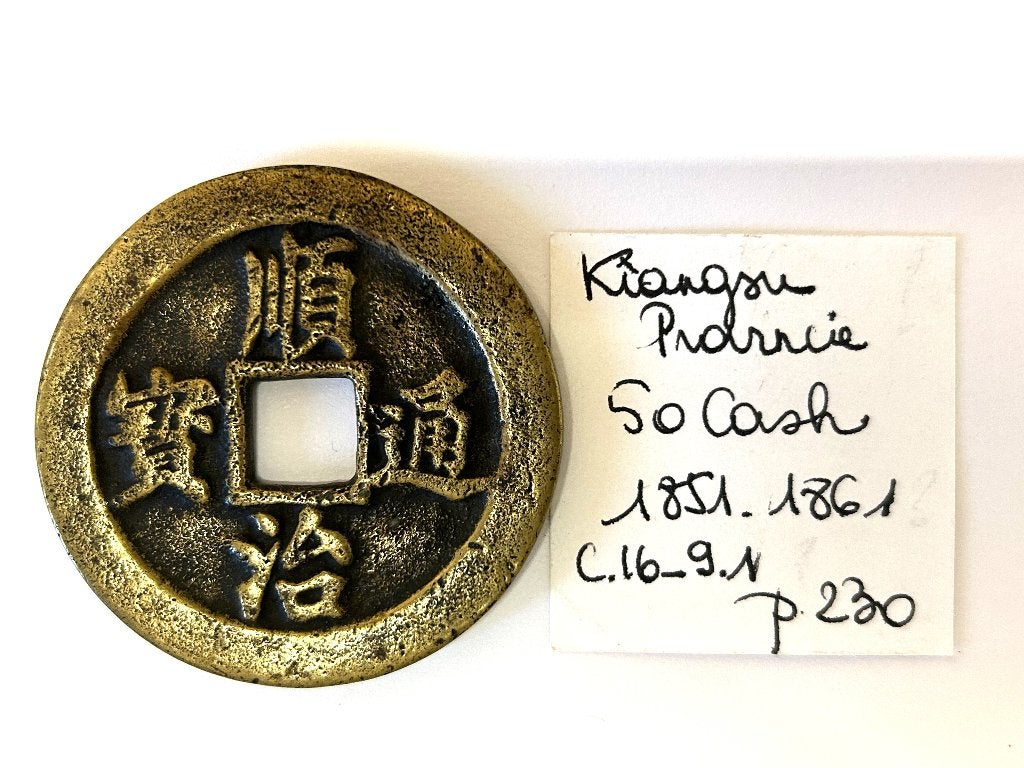 順治通寶
Kiangsu
Provincie
50 Cash
1851-1861
C.16-9.1
p. 230